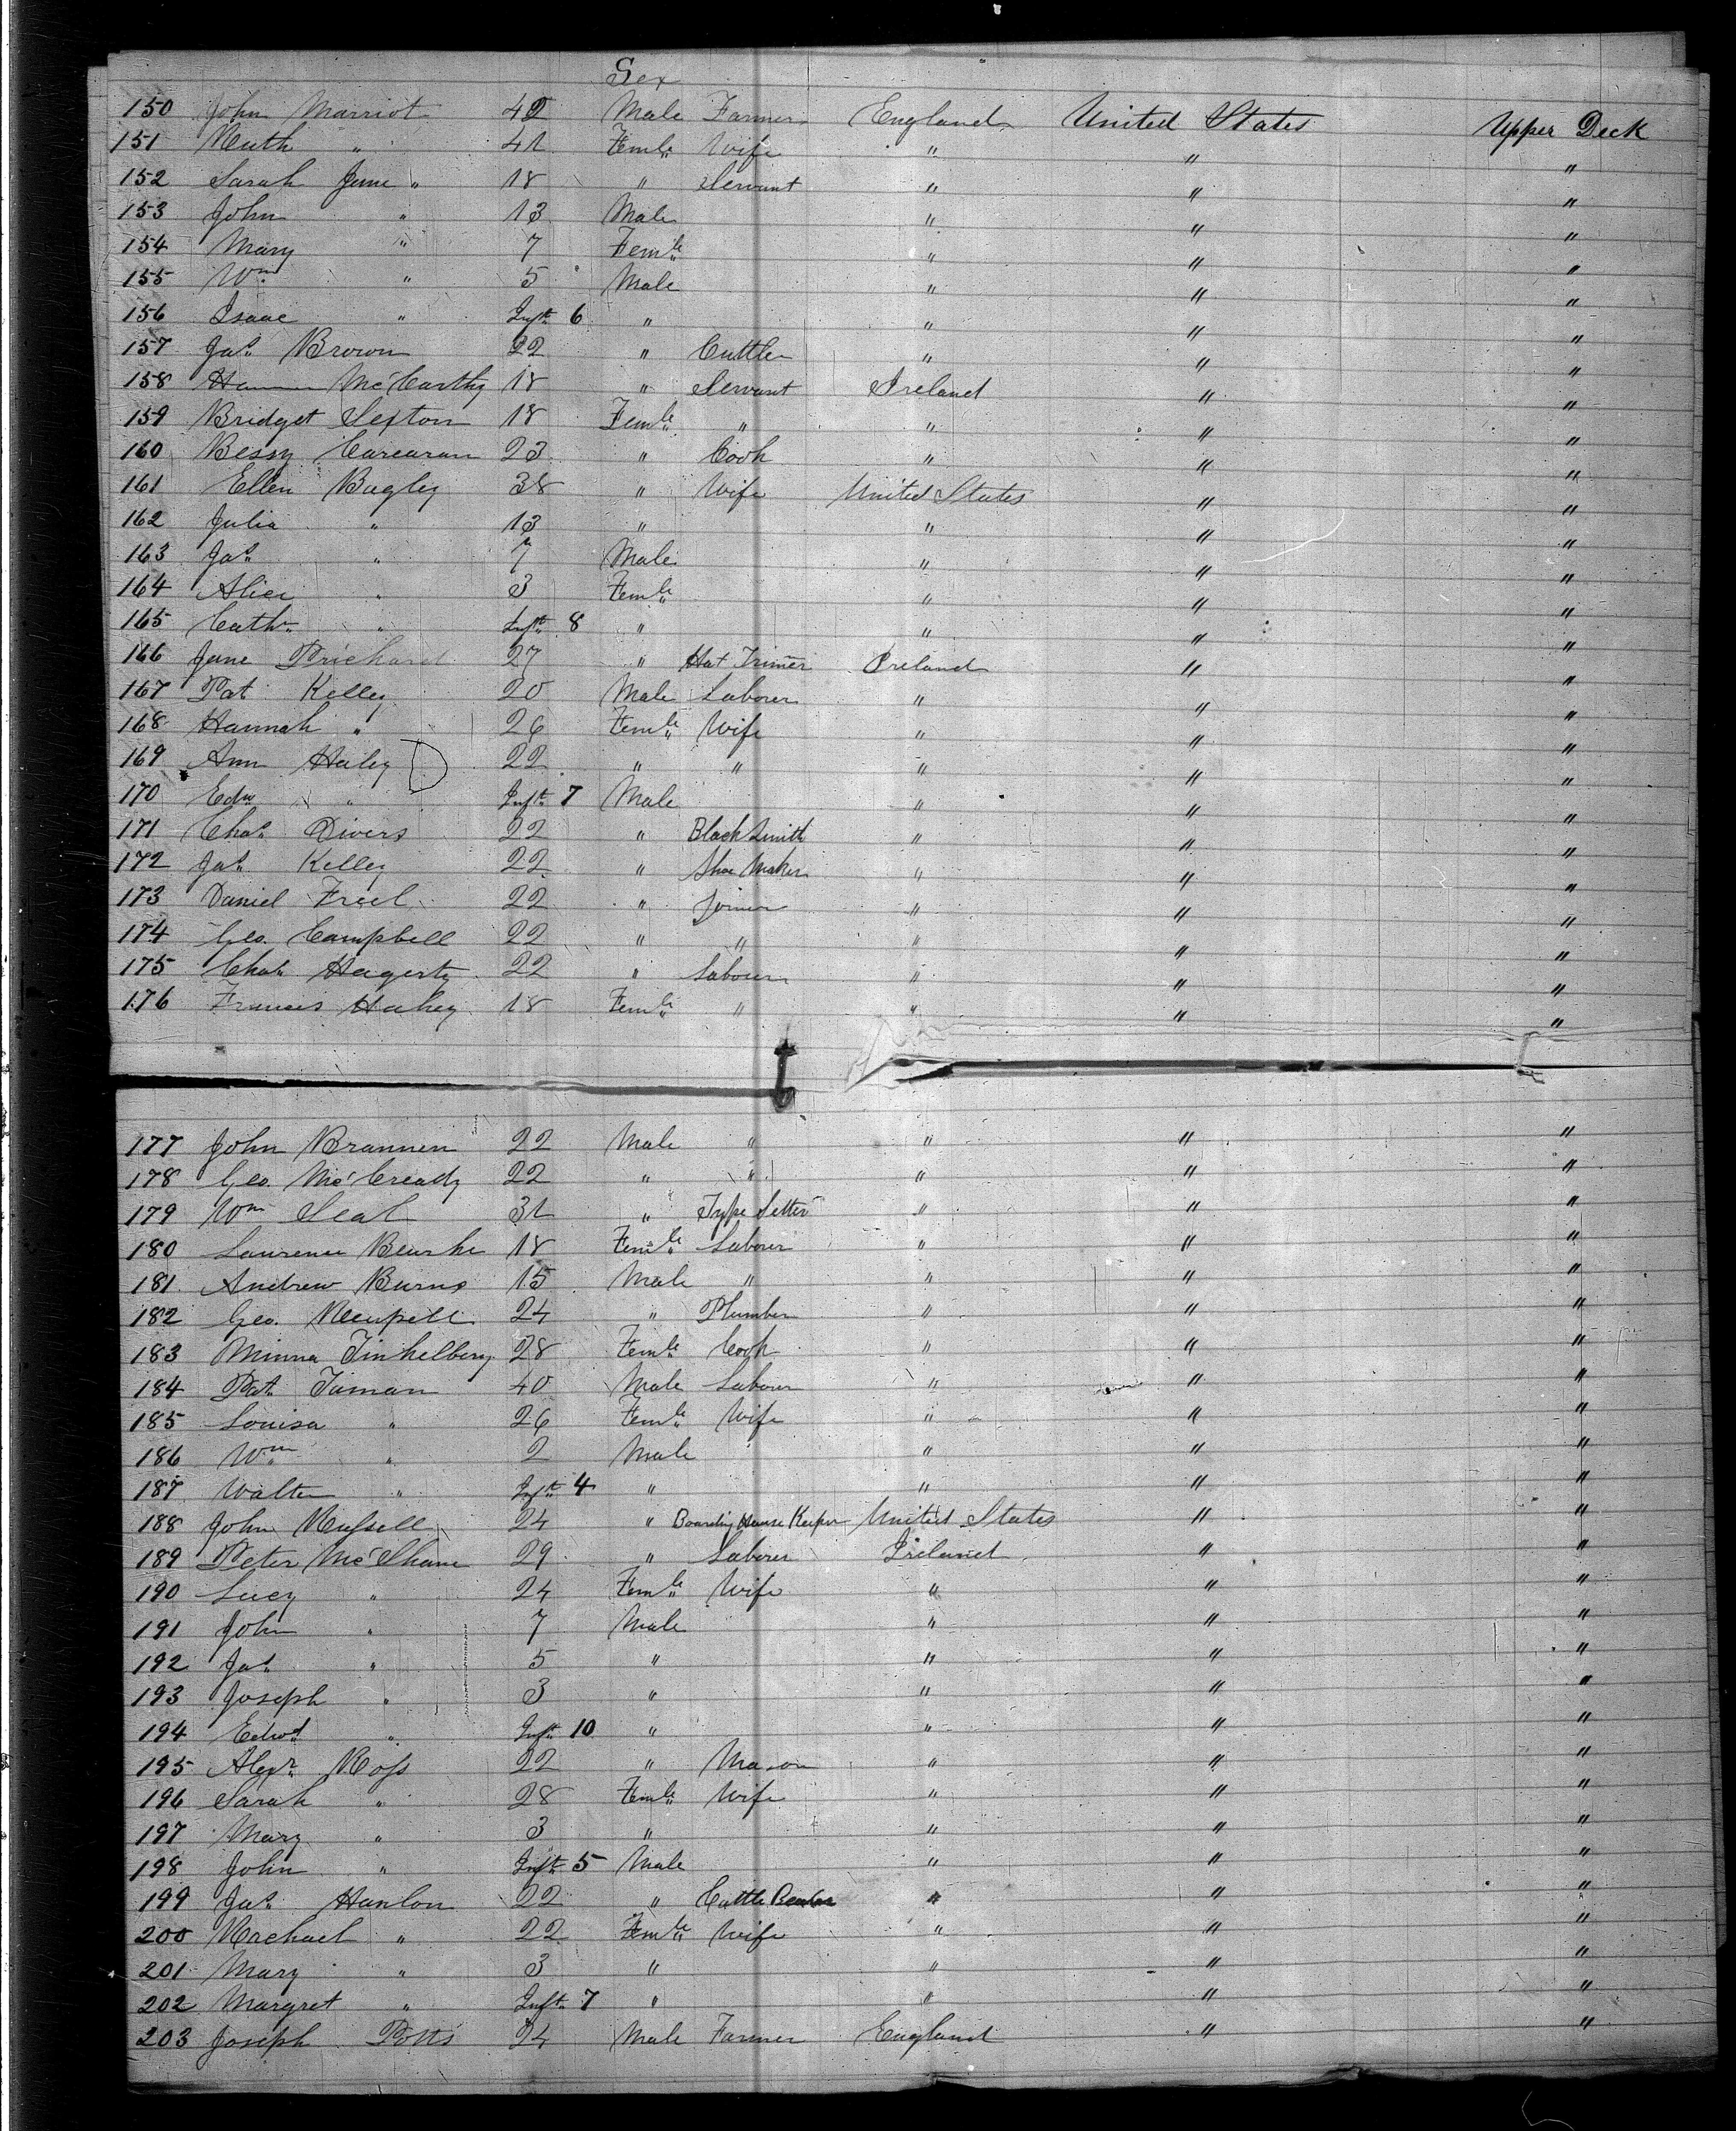 Sex
150 John Marriot 42 Male Farmer England United States Upper Deck
151 Ruth " 41 Fem.le Wife " " "
152 Sarah Jane " 18 " Servant " " "
153 John " 13 Male " " "
154 Mary " 7 Fem.le " " "
155 Wm " 5 Male " " "
156 Isaac " Inft. 6 " " " "
157 Jas. Brown 22 " Cuttler " " "
158 McCarthy 18 " Servant Ireland " "
159 Bridget Sexton 18 Fem.le " " " "
160 Bessy Carcaran 23 " Cook " " "
161 Ellen Bagley 38 " Wife United States " "
162 Julia " 13 " " " "
163 Jas. " 7 Male " " "
164 Alice " 3 Fem.le " " "
165 Cath. " Inft. 8 " " " "
166 Jane Prichard 27 " Hat Trimer Ireland " "
167 Pat Kelley 20 Male Laborer " " "
168 Hannah " 26 Fem.le Wife " " "
169 Ann Haley D 22 " " " " "
170 Edw " Inft. 7 Male " " "
171 Chas. Divers 22 " Black Smith " " "
172 Jas. Kelley 22 " Shoe Maker " " "
173 Daniel Freel 22 " Joiner " " "
174 Geo. Campbell 22 " " " " "
175 Chas. Hagerty 22 " Laborer " " "
176 Frances Hahey 18 Fem.le " " " "
177 John Brannen 22 Male " " " "
178 Geo. McCready 22 " " " " "
179 Wm Seal 31 " Type Setter " " "
180 Laurence Bourke 18 Fem.le Laborer " " "
181 Andrew Burns 15 Male " " " "
182 Geo. 24 " Plumber " " "
183 Minna Tinkelberg 28 Fem.le Cook " " "
184 Pat. Timan 40 Male Laborer " " "
185 Louisa " 26 Fem.le Wife " " "
186 Wm " 2 Male " " "
187 Walter " Inft. 4 " " " "
188 John Russell 24 " Boarding House Keeper United States " "
189 Peter McShane 29 " Laborer Ireland " "
190 Lucy " 24 Fem.le Wife " " "
191 John " 7 Male " " "
192 Jas. " 5 " " " "
193 Joseph " 3 " " " "
194 Edwd " Inft. 10 " " " "
195 Alexr. Ross 22 " Mason " " "
196 Sarah " 28 Fem.le Wife " " "
197 Mary " 3 " " " "
198 John " Inft. 5 Male " " "
199 Jas. Hanlon 22 " Cattle " " "
200 Rachael " 22 Fem.le Wife " " "
201 Mary " 3 " " " "
202 Margret " Inft. 7 " " " "
203 Joseph Potts 24 Male Farmer England " "